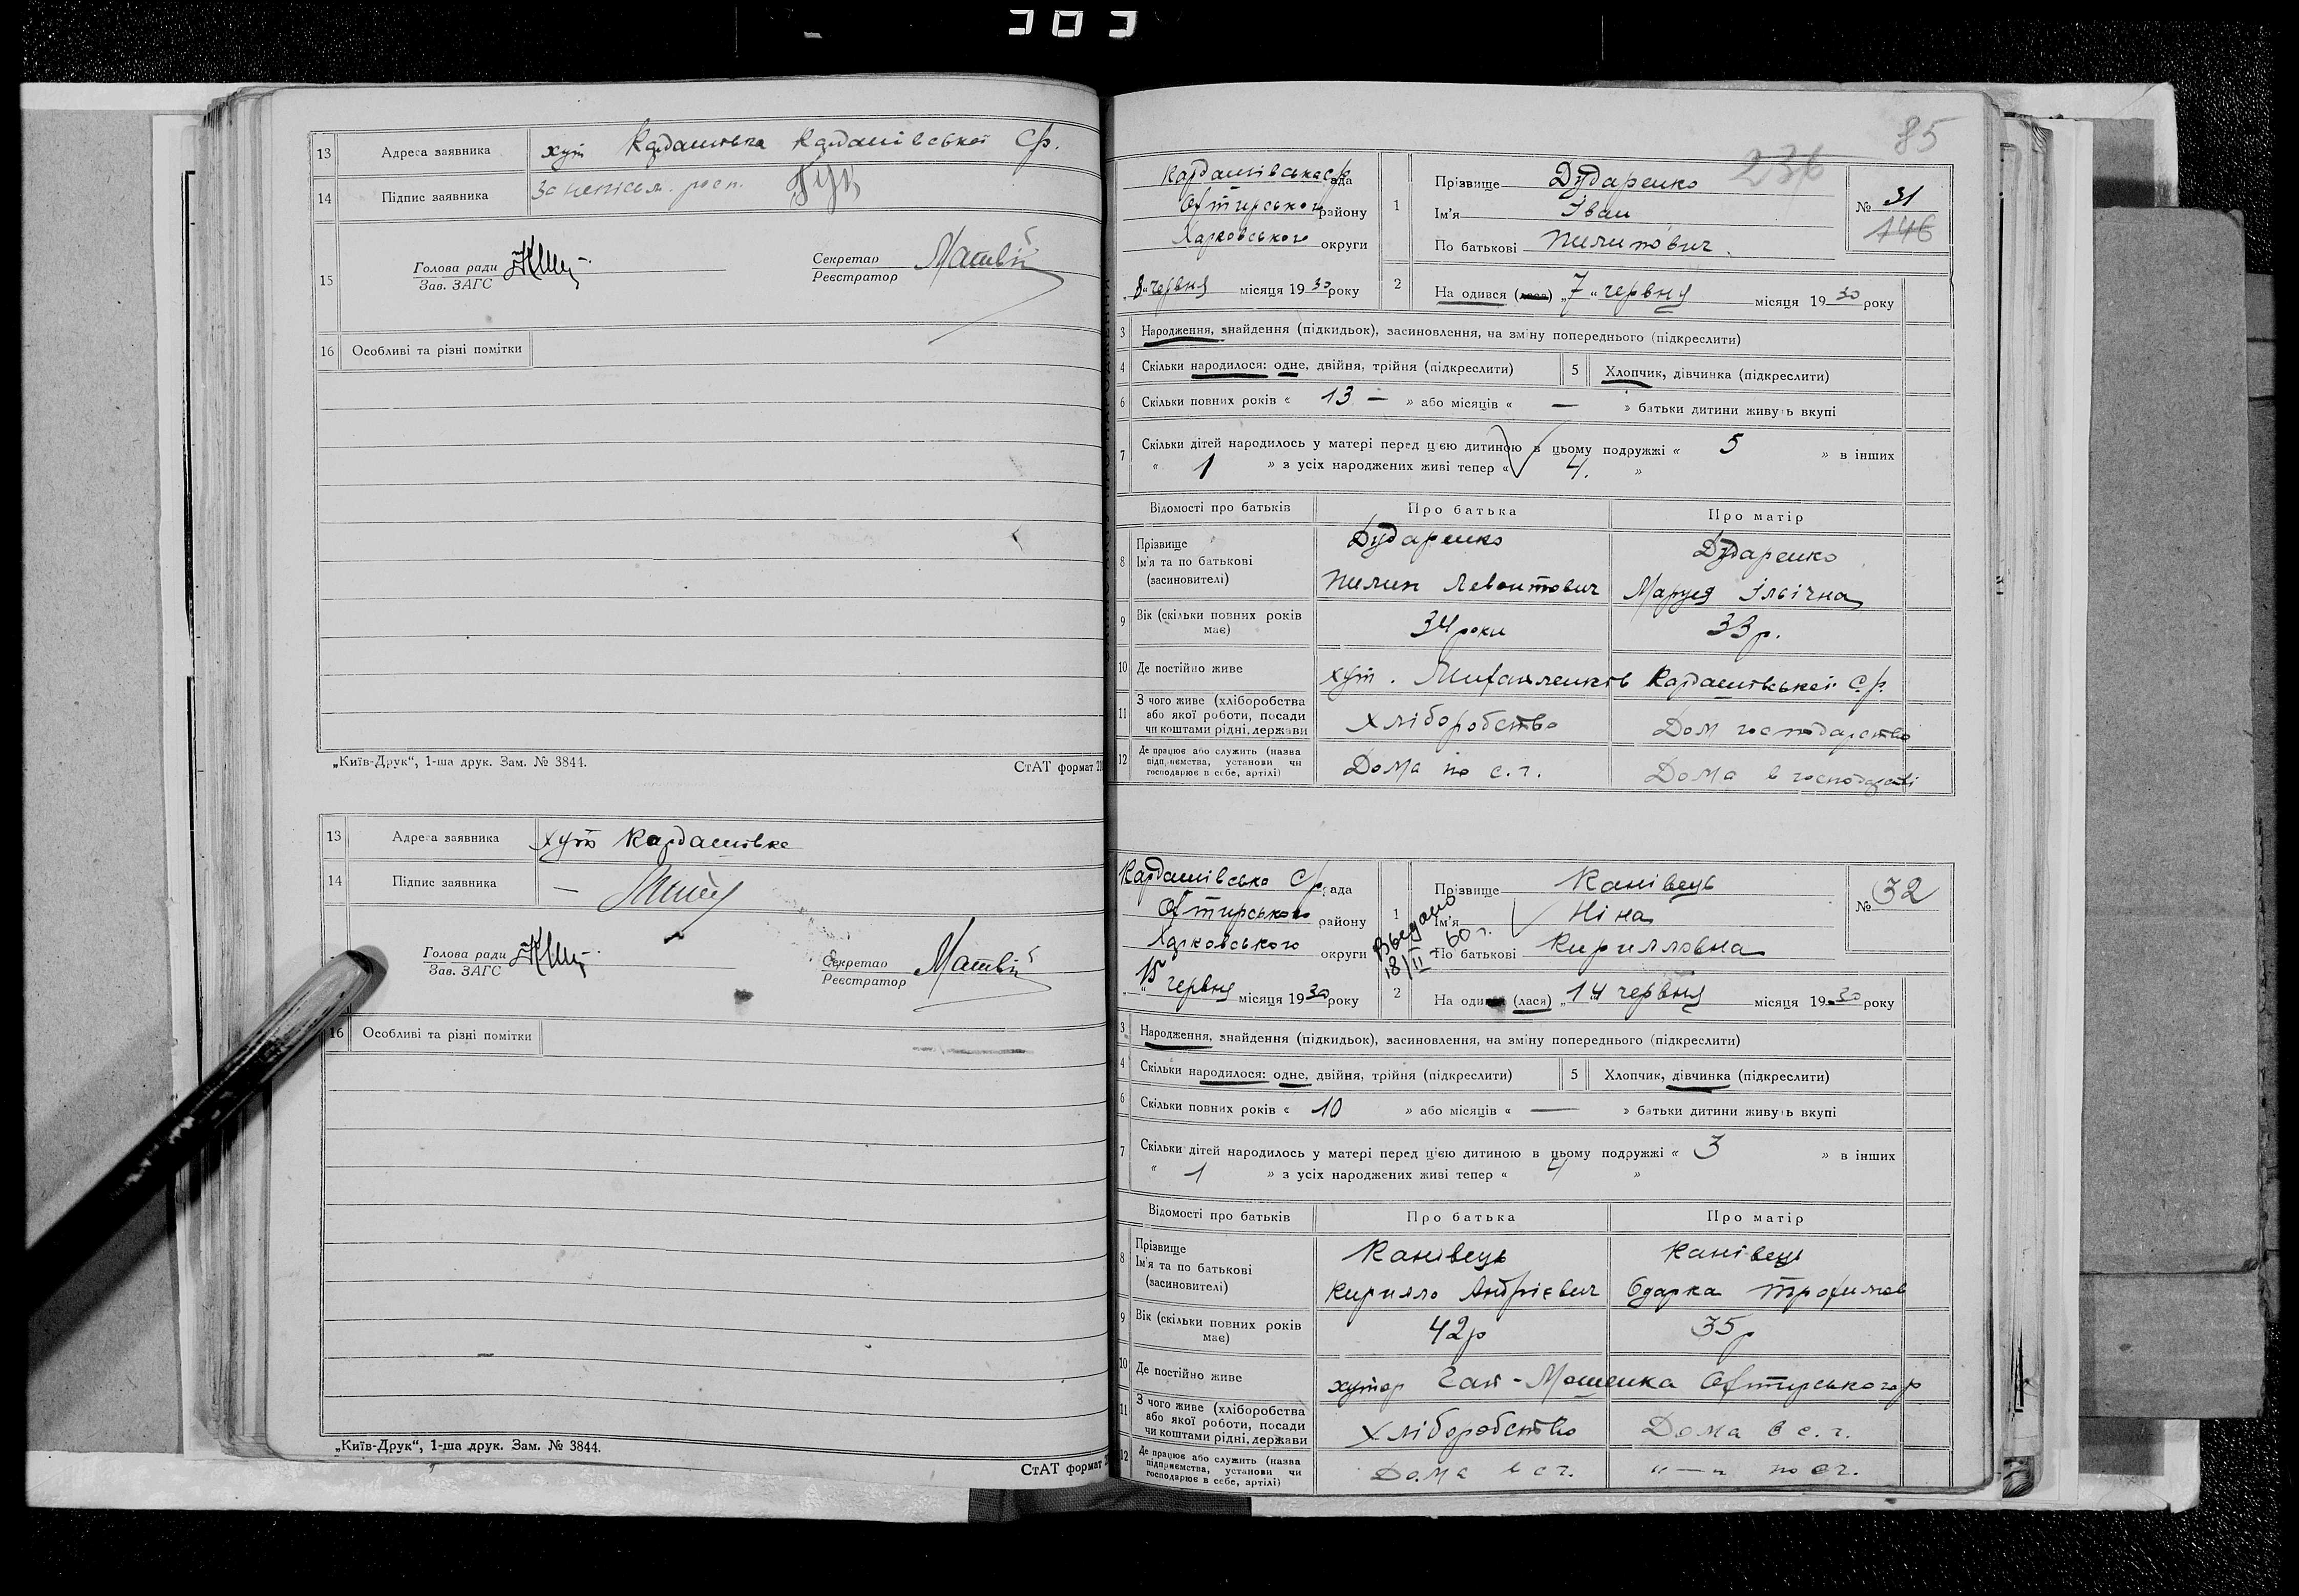 303
13 Адреса заявника хут Кардашовка Кардашівської Ср.
14 Підпис заявника За неписьм. росп.
15 Голова ради Секретар
Зав. ЗАГС Реєстратор
16 Особливі та різні помітки
„Київ-Друк“, 1-ша друк. Зам. № 3844.
СтАТ формат
13 Адреса заявника хут Кардашовка
14 Підпис заявника
Голова ради Секретар
Зав. ЗАГС Реєстратор
16 Особливі та різні помітки
„Київ-Друк“, 1-ша друк. Зам. № 3844.
СтАТ формат
85
236
Кардашівська ср. рада
Охтирського району
Харковського округи
„8“ червня місяця 1930 року
1 Прізвище Дударенко
Ім'я Іван
По батькові Пилипович.
№ 31
146
2 На одився (лася) „7“ червня місяця 1930 року
3 Народження, знайдення (підкидьок), засиновлення, на зміну попереднього (підкреслити)
4 Скільки народилося: одне, двійня, трійня (підкреслити) 5 Хлопчик, дівчинка (підкреслити)
6 Скільки повних років « 13 — » або місяців « — » батьки дитини живуть вкупі
7 Скільки дітей народилось у матері перед цією дитиною в цьому подружжі « 5 » в інших
« 1 » з усіх народжених живі тепер « 4. »
Відомості про батьків Про батька Про матір
8 Прізвище Дударенко Дударенко
Ім'я та по батькові
(засиновителі) Пилип Левонтович Маруся Ільїчна
9 Вік (скільки повних років має) 34 роки 33 р.
10 Де постійно живе хут. Михайленків Кардашівської с.р.
11 З чого живе (хліборобства
або якої роботи, посади
чи коштами рідні, держави Хліборобство Дом господарство
12 Де працює або служить (назва
підприємства, установи чи
господарює в себе, артілі) Дома по с.г. Дома в господарстві
Кардашівсько Ср. рада
Охтирського району
Харковського округи
„15“ червня місяця 1930 року
Выдано
18/II 60 г.
1 Прізвище Канівець
Ім'я Ніна
По батькові Кирилловна
№ 32
2 На одився (лася) „14 червня місяця 1930 року
3 Народження, знайдення (підкидьок), засиновлення, на зміну попереднього (підкреслити)
4 Скільки народилося: одне, двійня, трійня (підкреслити) 5 Хлопчик, дівчинка (підкреслити)
6 Скільки повних років « 10 » або місяців « — » батьки дитини живуть вкупі
7 Скільки дітей народилось у матері перед цією дитиною в цьому подружжі « 3 » в інших
« 1 » з усіх народжених живі тепер « 4 »
Відомості про батьків Про батька Про матір
8 Прізвище Канівець Канівець
Ім'я та по батькові
(засиновителі) Кирилло Андрієвич Одарка Трофимов
9 Вік (скільки повних років має) 42 р 35 р
10 Де постійно живе хутор Гай-Мошенка Охтирського р
11 З чого живе (хліборобства
або якої роботи, посади
чи коштами рідні, держави Хліборобство Дома в с.г.
12 Де працює або служить (назва
підприємства, установи чи
господарює в себе, артілі) Дома в с г. "—" по сг.